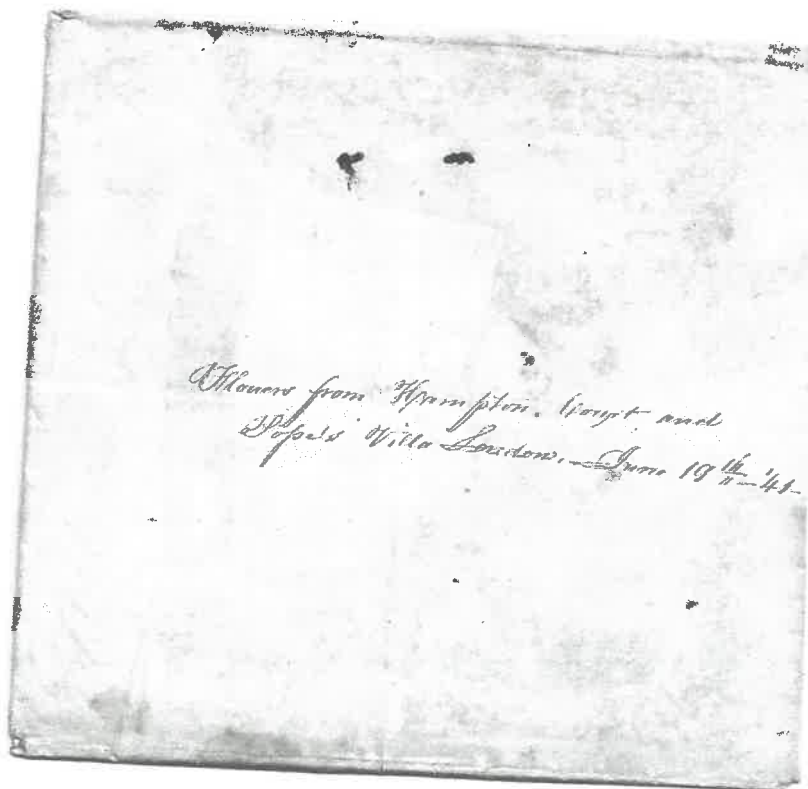 Flowers from Hampton. Court and
Pope's Villa London. — June 19th '41